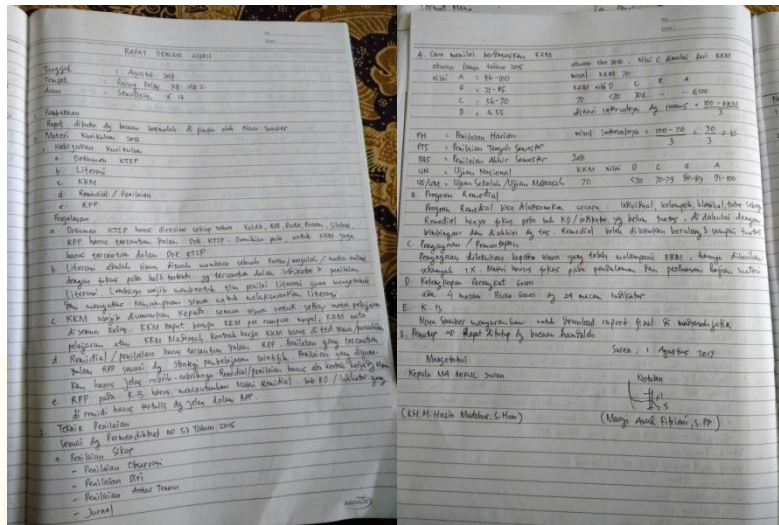 RAPAT DEWAN GURU
Tanggal : 1 Agustus 2017
Tempat : Ruang Kelas XII IPA 2
Acara : Sosialisasi K 13
Pembukaan
Rapat dibuka dg bacaan basmalah di pimpin oleh Nara Sumber
2. Materi Kurikulum 2013
1. Kebijakan Kurikulum
a. Dokumen KTSP
b. Literasi
c. KKM
d. Remidial / Penilaian
e. RPP
Penjelasan
a. Dokumen KTSP harus direvisi setiap tahun. Kaldik, RPE, Prota, Promes, Silabus,
RPP harus tercantum dalam Dok KTSP. Demikian pula untuk KKM juga
harus tercantum dalam Dok KTSP
b. Literasi adalah siswa disuruh membaca sebuah buku/majalah/media online
dengan fokus pada hal2 tertentu yg tercantum dalam indikator penilaian
literasi. Lembaga wajib membentuk tim penilai literasi guna mengetahui
dan mengukur kemampuan siswa untuk melaksanakan literasi.
c. KKM wajib diumumkan kepada semua siswa untuk setiap mata pelajaran
di semua kelas. KKM dapat berupa KKM per rumpun mapel, KKM mata
pelajaran atau KKM Madrasah. Kontrak kerja KKM harus di ttd siswa/perwakilan
d. Remidial / penilaian harus tercantum dalam RPP. Penilaian yang tercantum
dalam RPP sesuai dg strategi pembelajaran saintifik. Penilaian yang diguna
kan harus jelas rubrik-rubriknya. Remidial/penilaian harus ada
e. RPP pada K-13 harus mencantumkan Materi Remidial. Sub KD / indikator yang
di remidi harus tertulis dg jelas dalam RPP.
2. Teknik Penilaian
Sesuai dg Permendikbud No 53 Tahun 2015
a. Penilaian Sikap
- Penilaian Observasi
- Penilaian Diri
- Penilaian Antar Teman
- Jurnal
A. Cara menilai berdasarkan KKM
aturan lama tahun 2015
Nilai A = 86-100
B = 71-85
C = 56-70
D = ≤ 55
aturan thn 2016, Nilai C dimulai dari KKM
misal KKM 70
KKM Nilai D C B A
70 <70 70≤ - ≤100
dicari intervalnya dg rumus = 100 - KKM / 3
misal intervalnya = 100 - 70 / 3 = 30 / 3 = 10
PH = Penilaian Harian
PTS = Penilaian Tengah Semester
PAS = Penilaian Akhir Semester
UN = Ujian Nasional
US/UM = Ujian Sekolah / Ujian Madrasah
Jadi
KKM Nilai D C B A
70 <70 70-79 80-89 91-100
B. Program Remedial
Program Remedial bisa dilaksanakan secara : individual, kelompok, klasikal, tutor sebaya
Remedial hanya fokus pada sub KD / indikator yg belum tuntas, di dahului dengan
bimbingan dan diakhiri dg tes. Remedial boleh dilakukan berulang2 sampai tuntas
C. Pengayaan / Pemantapan
Pengayaan dilakukan kepada siswa yang telah melampaui KKM, hanya diberikan
sebanyak 1x. Materi harus fokus pada pendalaman dan perluasan kajian materi
D. Kelengkapan Perangkat Guru
Ada 4 macam Buku Guru dg 24 macam indikator
E. K-13
Nara Sumber menyarankan untuk download raport final di
3. Penutup ⇒ Rapat ditutup dg bacaan hamdalah
Suren, 1 Agustus 2017
Mengetahui
Kepala MA Suren
Notulen